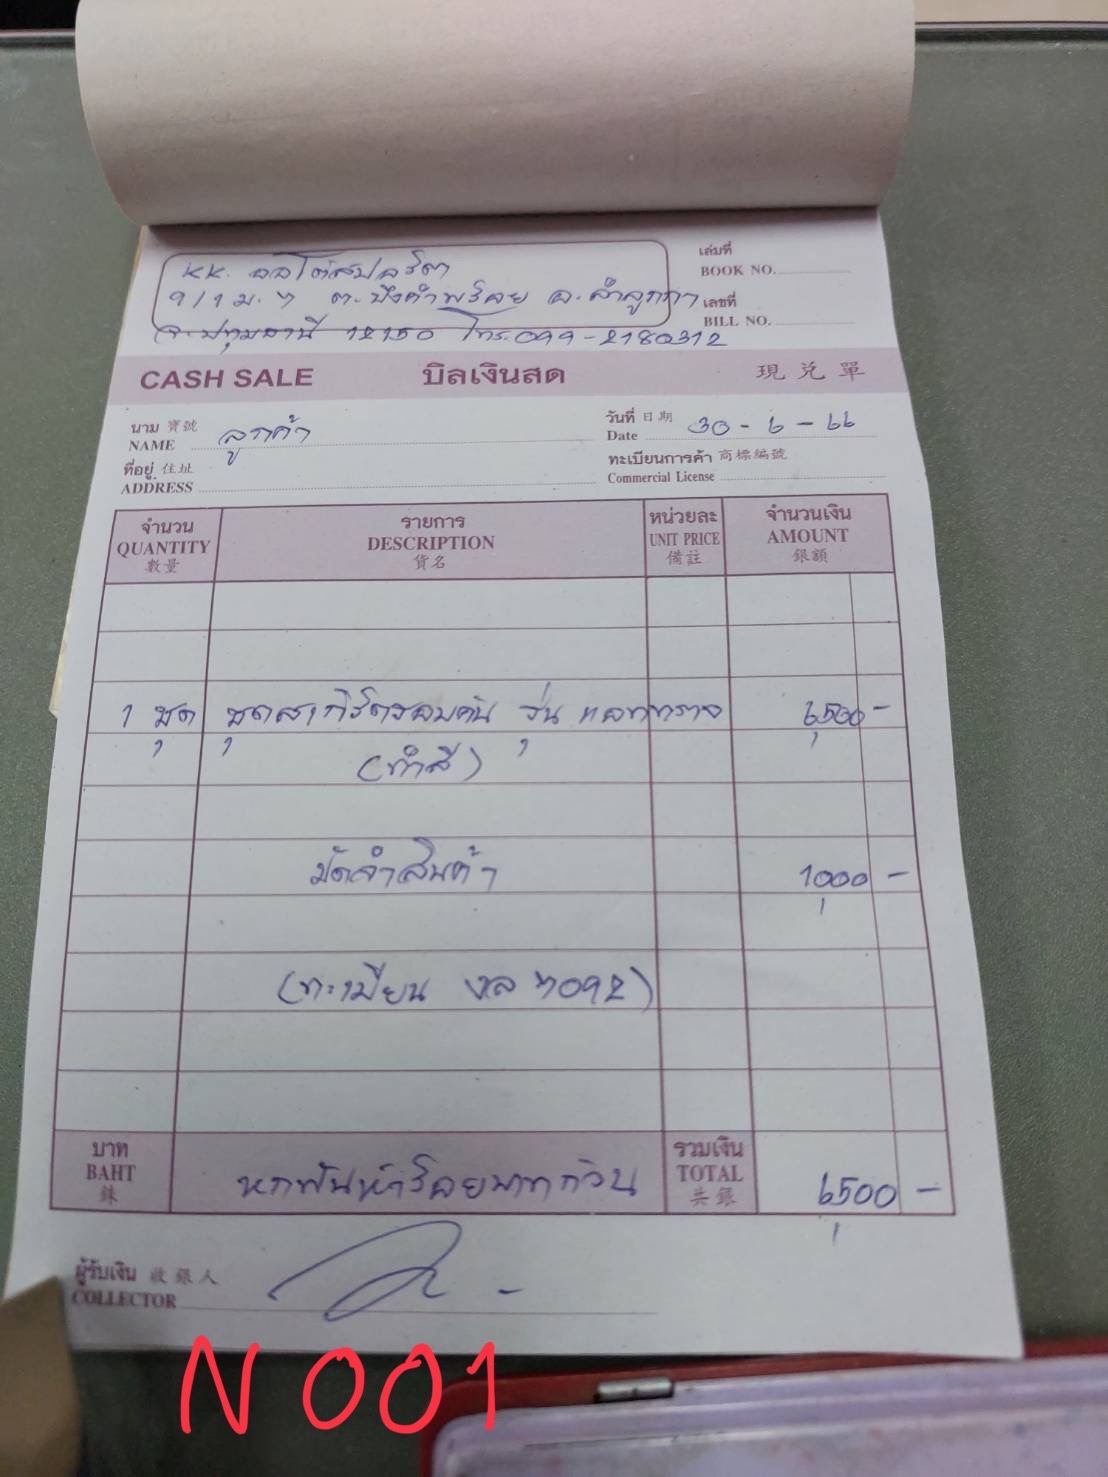 KK. ออโต้สปอร์ต
9/1 ม.7 ต.บึงคำพร้อย อ.ลำลูกกา
จ.ปทุมธานี 12150 โทร.099-2180312
เล่มที่
BOOK NO.
เลขที่
BILL NO.
CASH SALE บิลเงินสด 現兌單
นาม 寶號
NAME ลูกค้า
วันที่ 日期
Date 30-6-66
ที่อยู่ 住址
ADDRESS
ทะเบียนการค้า 商標編號
Commercial License
จำนวน รายการ หน่วยละ จำนวนเงิน
QUANTITY DESCRIPTION UNIT PRICE AMOUNT
數量 貨名 備註 銀額
1 ชุด ชุดสเกิร์ตรอบคัน รุ่น 6,500-
(ทำสี)
มัดจำสินค้า 1,000-
(ทะเบียน 7092)
บาท
BAHT
銖
หกพันห้าร้อยบาทถ้วน
รวมเงิน
TOTAL
共銀
6,500-
ผู้รับเงิน 收銀人
COLLECTOR
N001